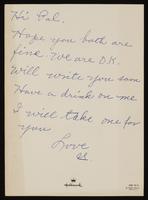 Hi Pal.
Hope you both are
fine. We are O.K.
Will write you soon
Have a drink on me
I will take one for
you
Love
Hallmark